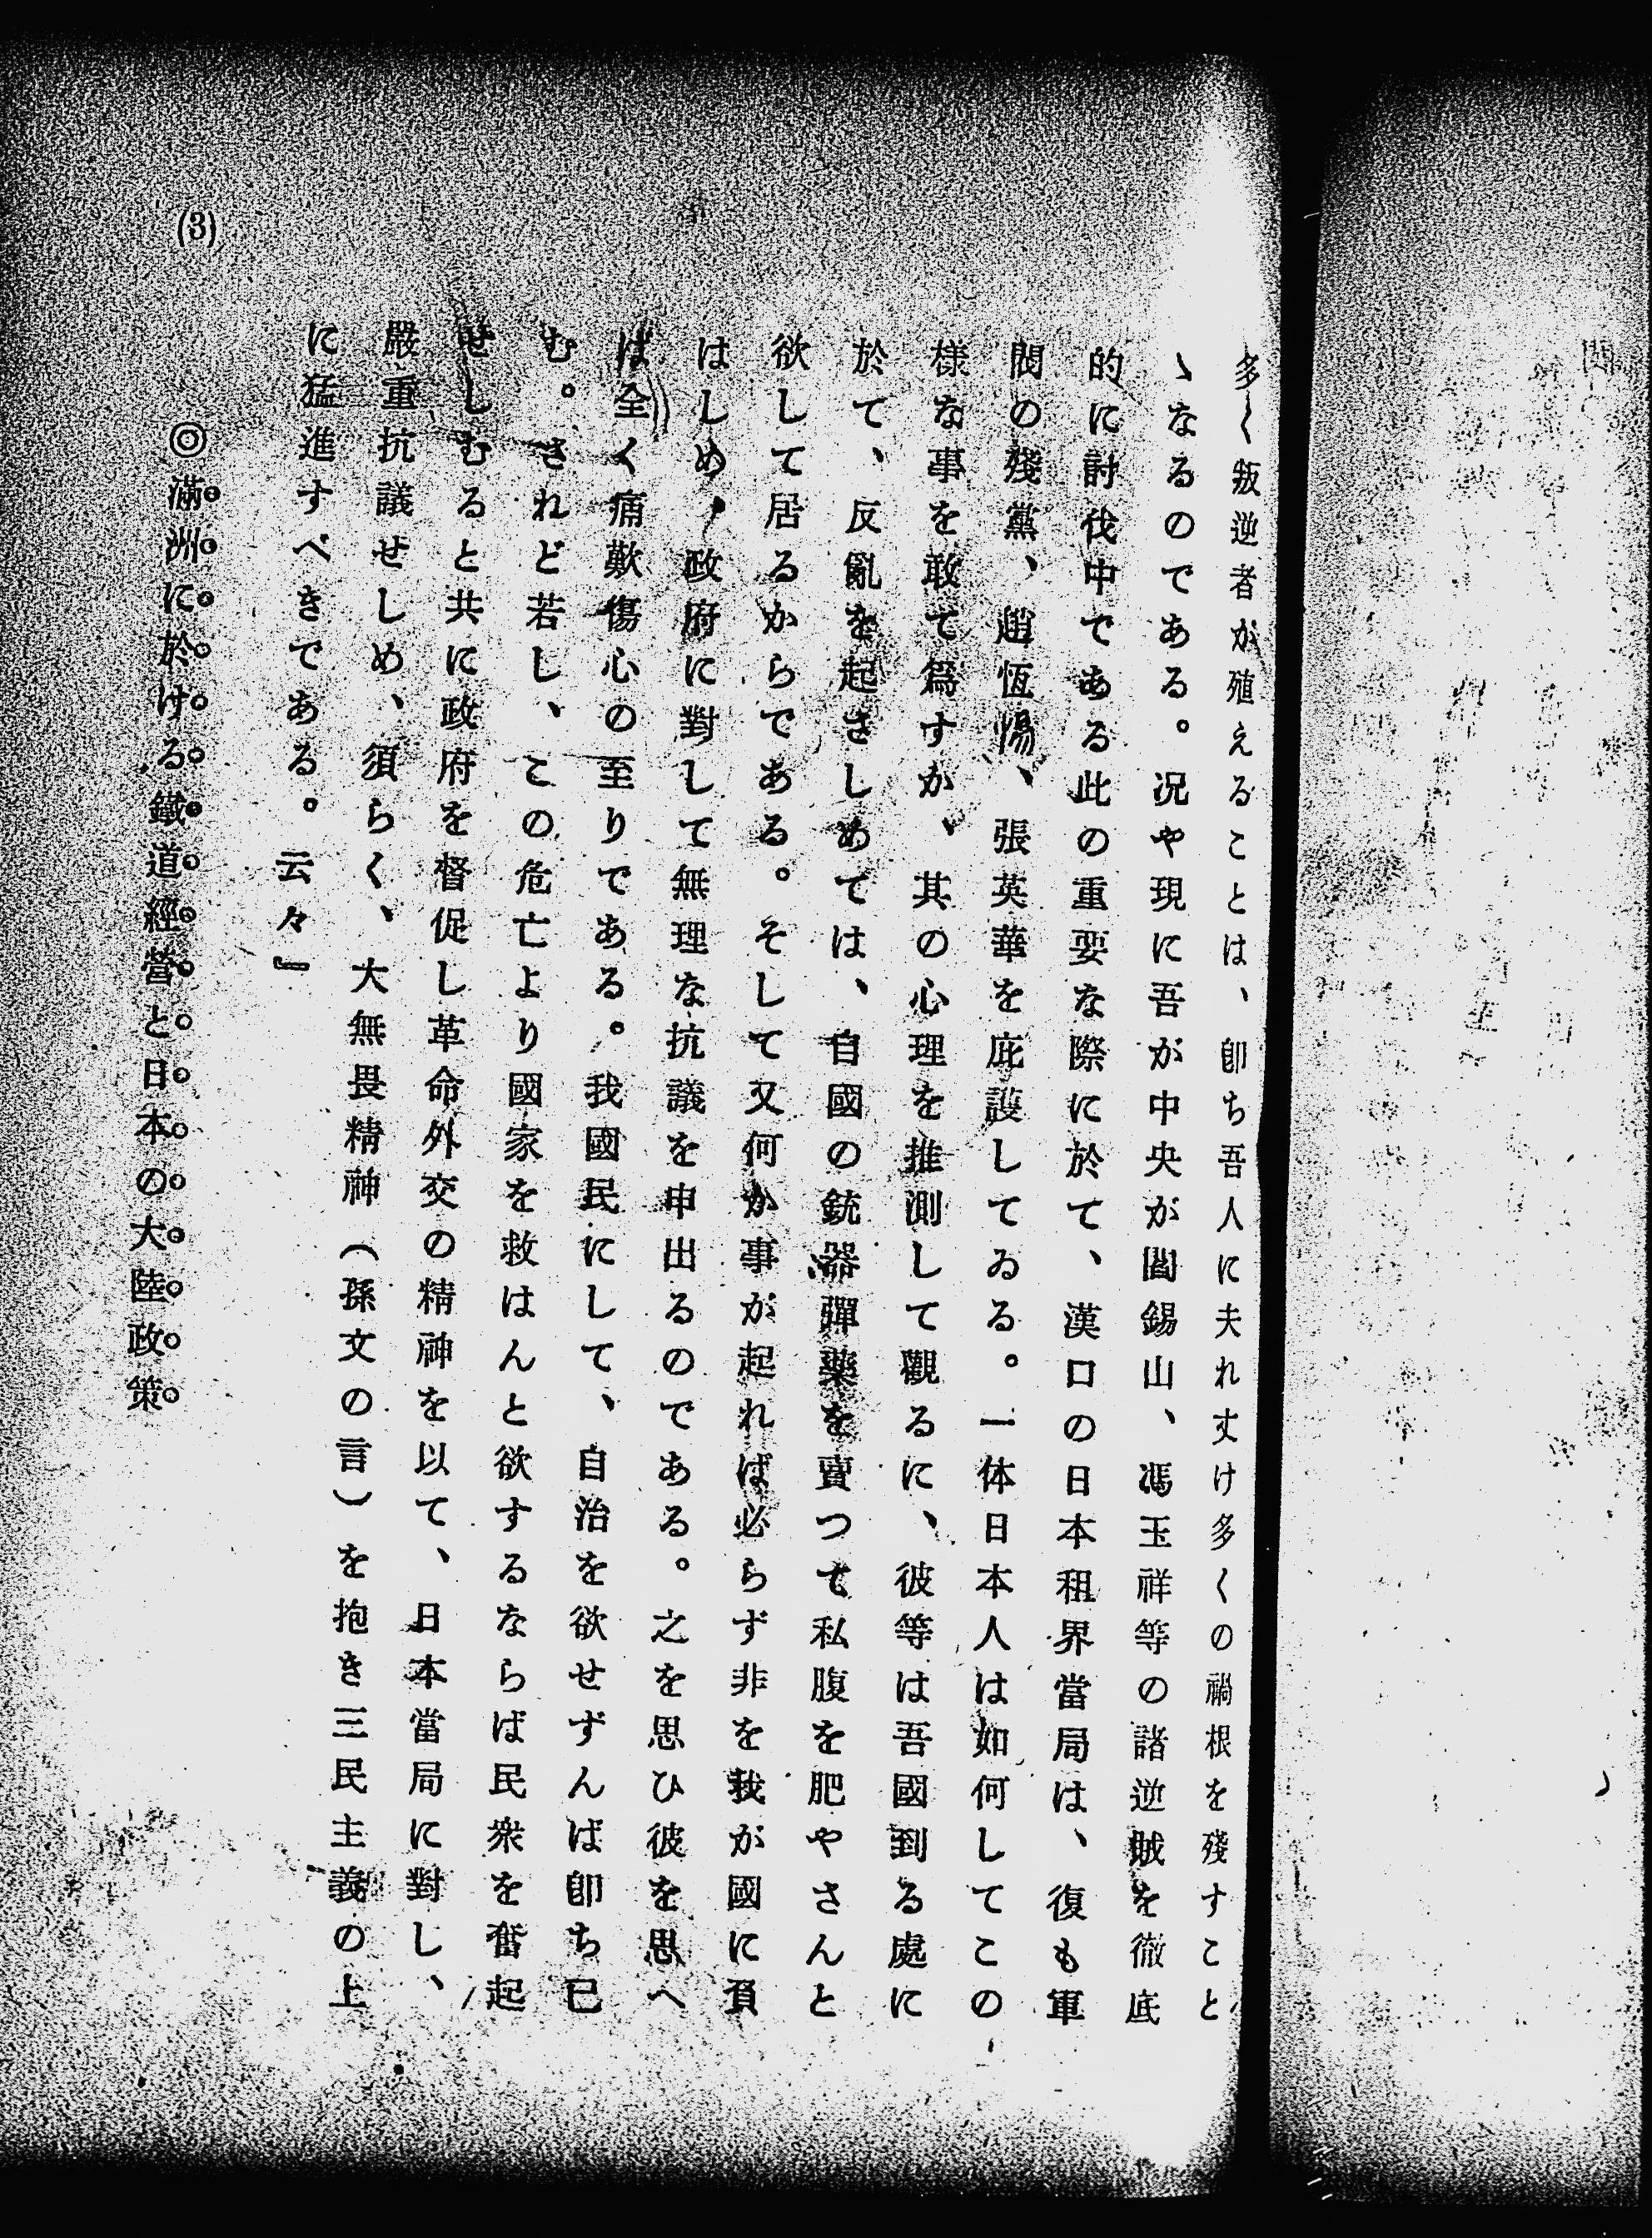 (3)
多く叛逆者が殖えることは、卽ち吾人に夫れ丈け多くの禍根を殘すこと
ゝなるのである。况や現に吾が中央が閻錫山、馮玉祥等の諸逆賊を徹底
的に討伐中である此の重要な際に於て、漢口の日本租界當局は、復も軍
閥の殘黨、趙恆惕、張英華を庇護してゐる。一体日本人は如何してこの
樣な事を敢て爲すか、其の心理を推測して觀るに、彼等は吾國到る處に
於て、反亂を起さしめては、自國の銃器彈藥を賣つて私腹を肥やさんと
欲して居るからである。そして又何か事が起れば必らず非を我が國に負
はしめ、政府に對して無理な抗議を申出るのである。之を思ひ彼を思へ
ば全く痛歎傷心の至りである。我國民にして、自治を欲せずんば卽ち已
む。されど若し、この危亡より國家を救はんと欲するならば民衆を奮起
せしむると共に政府を督促し革命外交の精神を以て、日本當局に對し、
嚴重抗議せしめ、須らく、大無畏精神（孫文の言）を抱き三民主義の上
に猛進すべきである。云々』
◎滿洲に於ける鐵道經營と日本の大陸政策